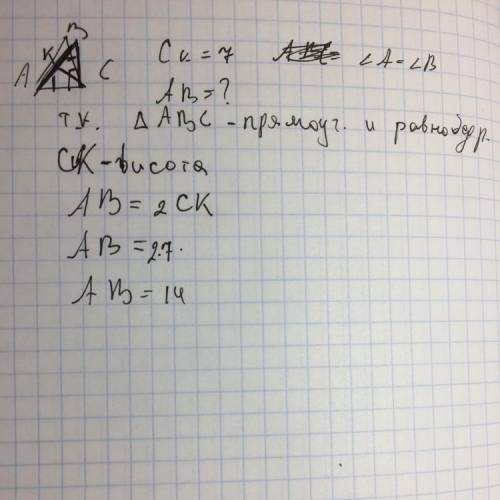 B
K
A C
Cк = 7 ∠A = ∠B
AB = ?
т.к. Δ ABC - прямоуг. и равнобедр.
CK - висота
AB = 2 CK
AB = 2.7.
AB = 14